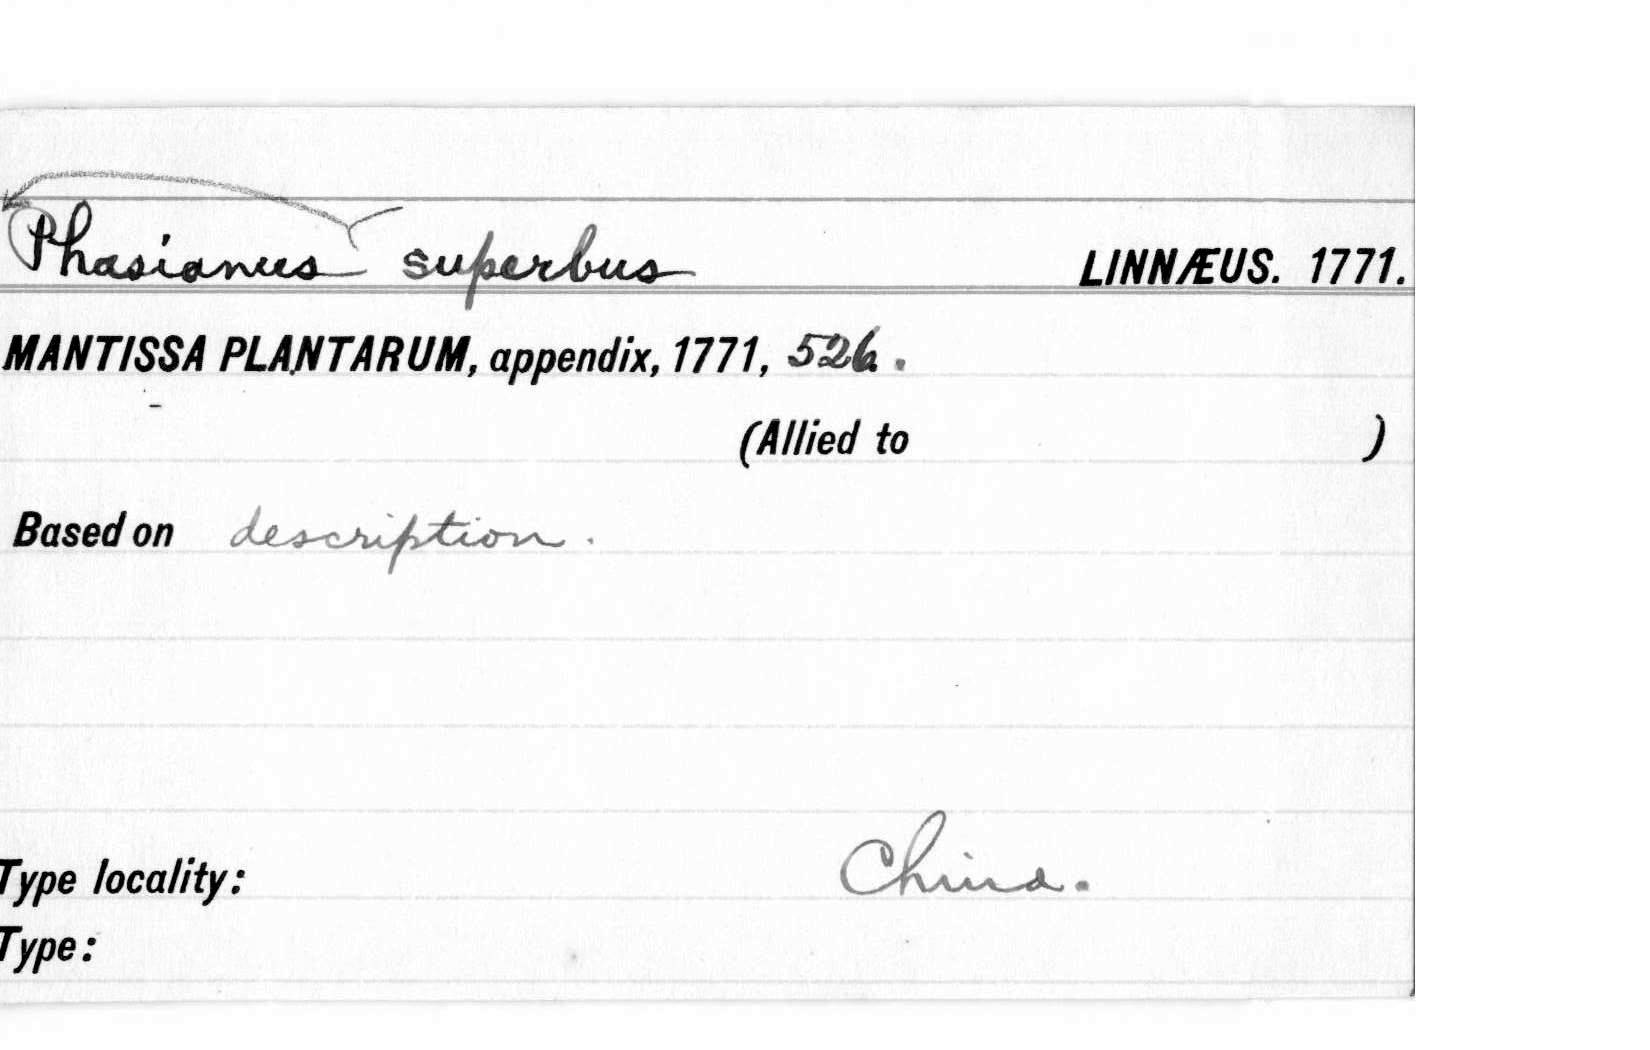 Phasianus superbus LINNÆUS. 1771.
MANTISSA PLANTARUM, appendix, 1771, 526.
(Allied to )
Based on description.
Type locality: China.
Type: